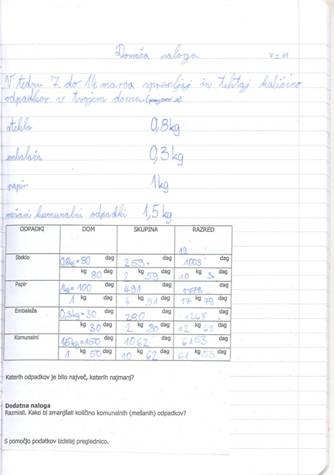 Domača naloga
V tednu 7. do 14. marca spremljaj in tehtaj količino
odpadkov v tvojem domu
steklo 0,8kg
embalaža 0,3kg
papir 1kg
mešani komunalni odpadki 1,5kg
ODPADKI DOM SKUPINA RAZRED
19
Steklo 0,8kg=80 dag 259 dag 1003 dag
kg 80 dag 2 kg 59 dag 10 kg 3 dag
Papir 1kg=100 dag 491 dag 1779 dag
1 kg dag 4 kg 91 dag 17 kg 79 dag
Embalaža 0,3kg=30 dag 280 dag 1268 dag
kg 30 dag 2 kg 80 dag 12 kg 68 dag
Komunalni 1,5kg=150 dag 1062 dag 6153 dag
1 kg 50 dag 10 kg 62 dag 61 kg dag
Katerih odpadkov je bilo največ, katerih najmanj?
Dodatna naloga
Razmisli. Kako bi zmanjšali količino komunalnih (mešanih) odpadkov?
S pomočjo podatkov izdelaj preglednico.